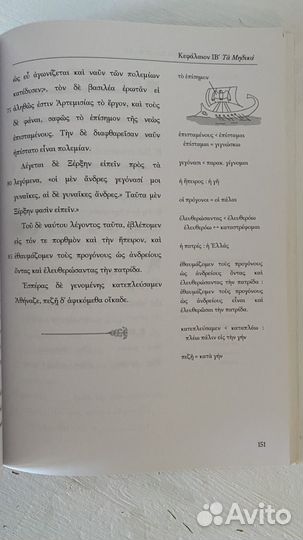 Κεφάλαιον ΙΒ′ Τὰ Μηδικά
ὡς εὖ ἀγωνίζεται καὶ ναῦν τῶν πολεμίων
κατέδυσεν», τὸν δὲ βασιλέα ἐρωτᾶν εἰ
75 ἀληθῶς ἐστιν Ἀρτεμισίας τὸ ἔργον, καὶ τοὺς
δὲ φάναι, σαφῶς τὸ ἐπίσημον τῆς νεὼς
ἐπισταμένους. Τὴν δὲ διαφθαρεῖσαν ναῦν
ἠπίστατο εἶναι πολεμίαν.
Λέγεται δὲ Ξέρξην εἰπεῖν πρὸς τὰ
80 λεγόμενα, «οἱ μὲν ἄνδρες γεγόνασί μοι
γυναῖκες, αἱ δὲ γυναῖκες ἄνδρες.» Ταῦτα μὲν
Ξέρξην φασὶν εἰπεῖν.»
Τοῦ δὲ ναύτου λέγοντος ταῦτα, ἐβλέπομεν
εἰς τόν τε πορθμὸν καὶ τὴν ἤπειρον, καὶ
85 ἐθαυμάζομεν τοὺς προγόνους ὡς ἀνδρείους
ὄντας καὶ ἐλευθερώσαντας τὴν πατρίδα.
Ἑσπέρας δὲ γενομένης κατεπλεύσαμεν
Ἀθήναζε, πεζῇ δ᾽ ἀφικόμεθα οἴκαδε.
τὸ ἐπίσημον
ἐπισταμένους < ἐπίσταμαι
ἐπίσταμαι = γιγνώσκω
γεγόνασι = παρακ. γίγνομαι
ἡ ἤπειρος : ἡ γῆ
οἱ πρόγονοι = οἱ πάλαι
ἐλευθερώσαντας < ἐλευθερόω
ἐλευθερόω ↔ καταστρέφομαι
ἡ πατρίς : ἡ Ἑλλάς
ἐθαυμάζομεν τοὺς προγόνους
ὡς ἀνδρείους ὄντας καὶ
ἐλευθερώσαντας τὴν πατρίδα :
ἐθαυμάζομεν τοὺς προγόνους
ὡς ἀνδρεῖοί εἰσι καὶ
ἐλευθερῶσαι τὴν πατρίδα.
κατεπλεύσαμεν < καταπλέω :
πλέω πάλιν εἰς τὴν γῆν
πεζῇ = κατὰ γῆν
151
Avito